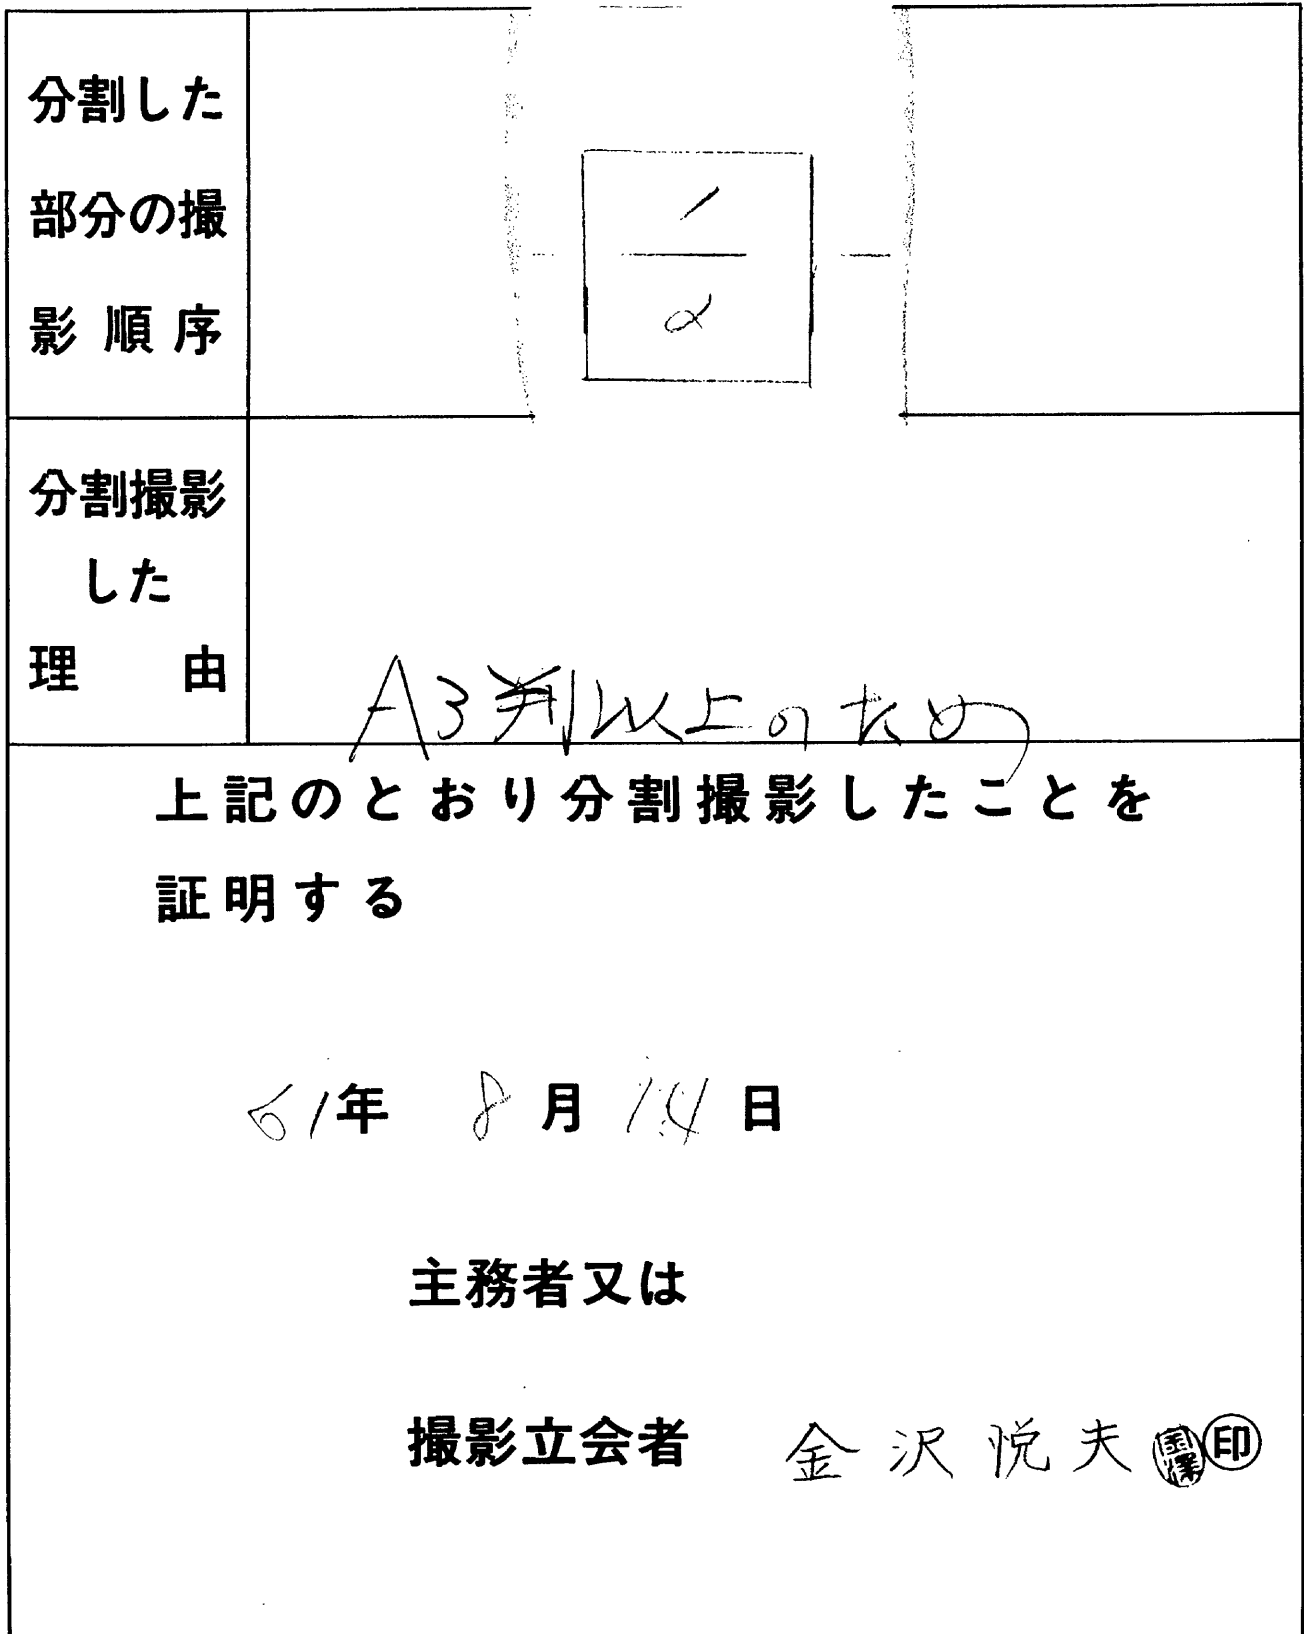 分割した
部分の撮
影順序
1
2
分割撮影
した
理由
A3判以上のため
上記のとおり分割撮影したことを
証明する
61年 8月 14日
主務者又は
撮影立会者 金沢悦夫 金澤 印